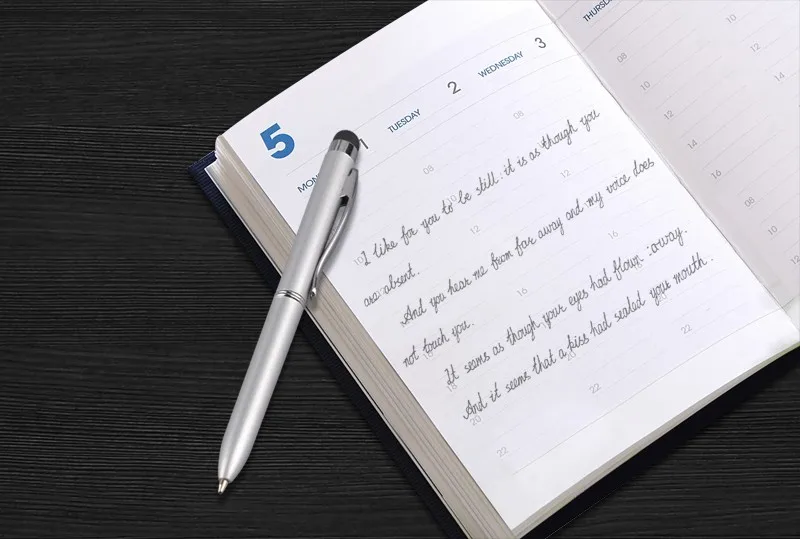 5
MON 1 TUESDAY 2 WEDNESDAY 3
THURSDAY
I like for you to be still: it is as though you
are absent.
And you hear me from far away and my voice does
not touch you.
It seems as though your eyes had flown away.
And it seems that a kiss had sealed your mouth.
08 08 08
10 10 10
12 12 12
14
16 16 16
18
20 20 20
22 22 22
08 10
10 12
12 14
14
16
08
10
12